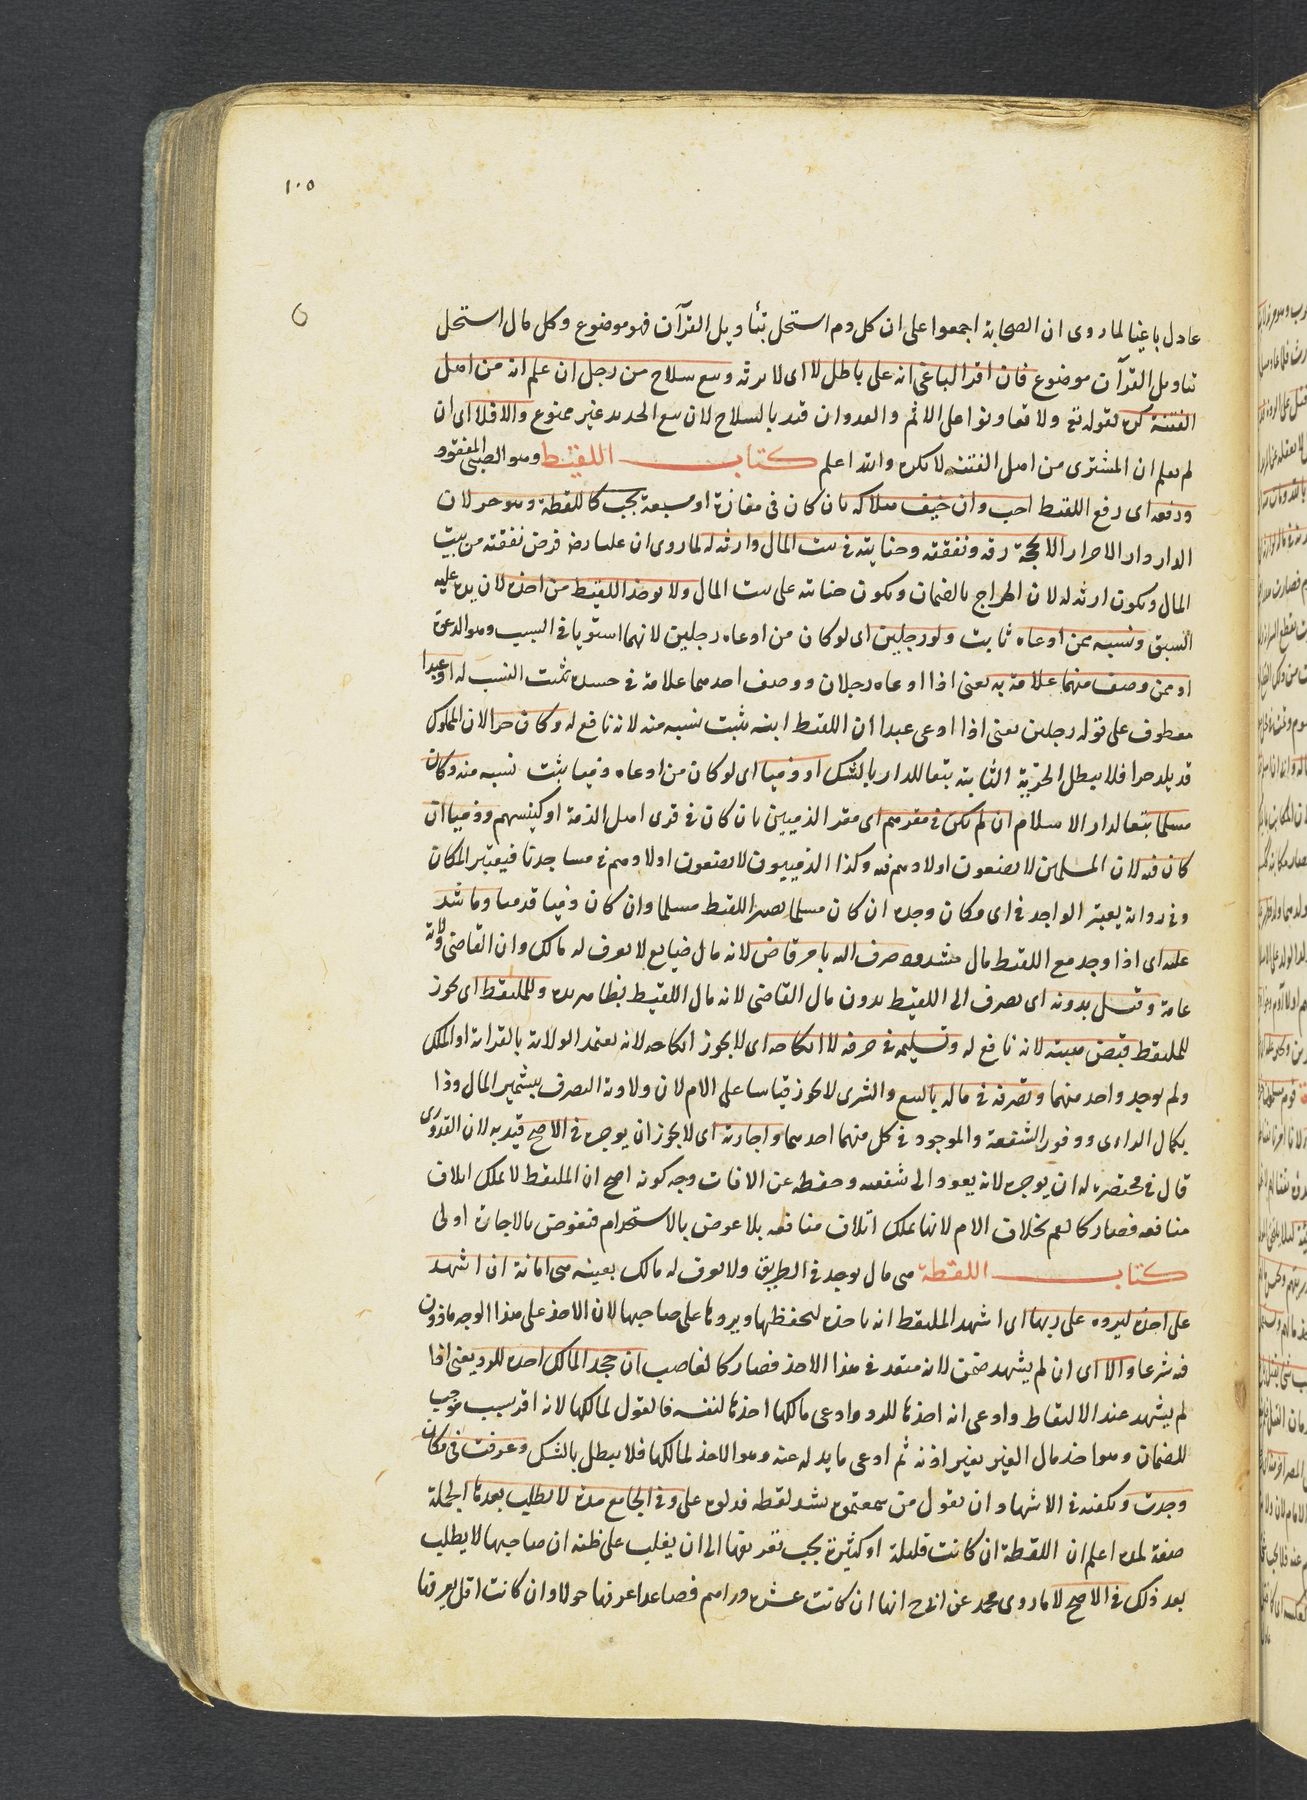 ١٠٥
عادل باغيا لما روى ان الصحابة اجمعوا على ان كل دم استحل بتأويل القرآن فهو موضوع وكل مال استحل
بتاويل القرآن موضوع فان اقر الباغى انه على باطل لا اى لا يرثه وبيع سلاح من رجل ان علم انه من اهل
الفتنة كره لقوله تع ولا تعاونوا على الاثم والعدوان قيد بالسلاح لان بيع الحديد غير ممنوع والا فلا اى ان
لم يعلم ان المشترى من اهل الفتنة لا يكره والله اعلم كتاب اللقيط وهو الصبى المفقود
ورفعه اى رفع اللقيط احب وان خيف هلاكه بان كان فى مفازة او مسبعة يجب كاللقطة وهو حر لان
الدار دار الاحرار الا بحجة رقه ونفقته وجنايته فى بيت المال وارثه له لما روى ان عليا رض فرض نفقته من بيت
المال ويكون ارثه له لان الخراج بالضمان ويكون جنايته على بيت المال ولا يوخذ اللقيط من اخذه لان يده عليه
اسبق ونسبه ممن ادعاه ثابت ولو رجلين اى لو كان من ادعاه رجلين لانهما استويا فى السبب وهو الدعوة
او ممن وصف منهما علامة به يعنى اذا ادعاه رجلان ووصف احدهما علامة فى جسده يثبت النسب له او عبدا
معطوف على قوله رجلين يعنى اذا ادعى عبد ان اللقيط ابنه يثبت نسبه منه لانه نافع له وكان حرا لان المملوك
قد يلد حرا فلا يبطل الحرية الثابتة بتعا للدار بالشك او ذميا اى لو كان من ادعاه ذميا يثبت نسبه منه وكان
مسلما بتعا لدار الاسلام ان لم يكن فى مقرهم اى مقر الذميين بان كان فى قرى اهل الذمة او كينسهم وذميا ان
كان فيه لان المسلمين لا يضعون اولادهم فيه وكذا الذميون لا يضعون اولادهم فى مساجدنا فيعتبر المكان
وفى رواية يعتبر الواجد فى اى مكان وجده ان كان مسلما يصير اللقيط مسلما وان كان ذميا قدميا وما شد
عليه اى اذا وجد مع اللقيط مال مشدود صرف اليه بامر قاض لانه مال ضايع لا يعرف له مالك وان القاضى ولاية
عامة وقيل بدونه اى يصرف الى اللقيط بدون مال القاضى لانه مال اللقيط بظاهر يده وللملتقط اى يجوز
للملتقط قبض هبته لانه نافع له وتسليمه فى حرفة لا انكاحه اى لا يجوز انكاحه لانه يعتمد الولاية بالقرابة او الملك
ولم يوجد واحد منهما وتصرفه فى ماله بالبيع والشرى لا يجوز قياسا على الام لان ولاية التصرف بيثمير المال وذا
بكمال الراى ووفور الشفقة والموجود فى كل منهما احدهما واجارته اى لا يجوز ان يوجره فى الاصح قيد به لان القدورى
قال فى مختصره له ان يوجره لانه يعود الى شفقته وحفظه عن الافات وجه كونه اصح ان الملتقط لا يملك اتلاف
منافعه فصار كالعم بخلاف الام لانها تملك اتلاف منافعه بلا عوض بالاستخدام فتعوض بالاجارة اولى
كتاب اللقطة هى مال يوجد فى الطريق ولا يعرف له مالك بعينه هى امانة ان اشهد
على اخذه ليرده على ربها اى اشهد الملتقط انه ياخذه ليحفظها ويردها على صاحبها لان الاخذ على هذا الوجه ماذون
فيه شرعا والا اى ان لم يشهد ضمن لانه متعد فى هذا الاخذ فصار كالغاصب ان جحد المالك اخذه للرد يعنى اذا
لم يشهد عند الالتقاط وادعى انه اخذها للرد وادعى مالكها اخذها لنفسه فالقول لمالكها لانه اقر بسبب موجب
للضمان وهو اخذ مال الغير بغير اذنه ثم ادعى ما يدله عنه وهو الاخذ لمالكها فلا يبطل بالشك وعرفت فى مكان
وجدت ويكفيه فى الاشهاد ان يقول من سمعتموه ينشد لقطة فدلوه على وفى الجامع مدة لا يطلب بعدها الجملة
صفة لمدة اعلم ان اللقطة ان كانت قليلة او كثيرة يجب تعريفها الى ان يغلب على ظنه ان صاحبها لا يطلب
بعد ذلك فى الاصح لا ما روى محمد عن ابى ح انها ان كانت عشرة دراهم فصاعدا عرفها حولا وان كانت اقل يعرفها